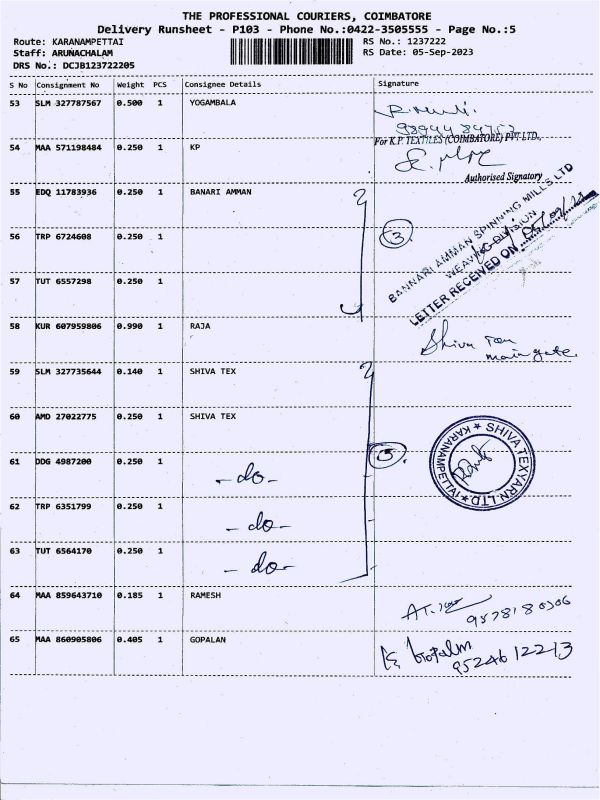 THE PROFESSIONAL COURIERS, COIMBATORE
Delivery Runsheet - P103 - Phone No.:0422-3505555 - Page No.:5
Route: KARANAMPETTAI RS No.: 1237222
Staff: ARUNACHALAM RS Date: 05-Sep-2023
DRS No.: DCJB123722205
S No Consignment No Weight PCS Consignee Details Signature
53 SLM 327787567 0.500 1 YOGAMBALA
54 MAA 571198484 0.250 1 KP
For K.P. TEXTILES (COIMBATORE) PVT LTD.,
Authorised Signatory
55 EDQ 11783936 0.250 1 BANARI AMMAN
56 TRP 6724608 0.250 1
3
BANNARI AMMAN SPINNING MILLS LTD
WEAVING DIVISION
LETTER RECEIVED ON
57 TUT 6557298 0.250 1
58 KUR 607959806 0.990 1 RAJA
Shiva Tex
main gate
59 SLM 327735644 0.140 1 SHIVA TEX
60 AMD 27022775 0.250 1 SHIVA TEX
61 DDG 4987200 0.250 1 -do-
5
SHIVA TEXYARN LTD
KARANAMPETTAI
62 TRP 6351799 0.250 1 -do-
63 TUT 6564170 0.250 1 -do-
64 MAA 859643710 0.185 1 RAMESH
9578180306
65 MAA 860905806 0.405 1 GOPALAN
K Gopalm
9524612213